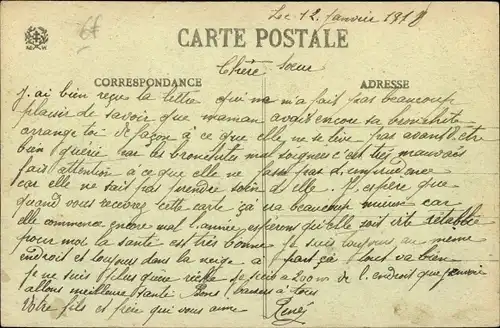 Le 12 Janvier 1918
CARTE POSTALE
Chère Sœur
CORRESPONDANCE
ADRESSE
J'ai bien reçue ta lettre qui ne m'a fait pas beaucoup
plaisir de savoir que maman avait encore sa bronchite
arrange toi de façon à ce que elle ne se lève pas avant d'etre
bien guérie car les bronchites mal soignées c'est très mauvais
fait attention à ce que elle ne fasse pas d'imprudence
car elle ne sait pas prendre soin d'elle. J'espère que
quand vous recevrez cette carte ça ira beaucoup mieux car
elle commence encore mal l'année espérons qu'elle soit vite rétablie
pour moi la santé est très bonne je suis toujours au meme
endroit et toujours dans la neige a part ça tout va bien
je ne suis plus qu'une je suis a 200 m de l'endroit que
allons meilleure santé Bons baisers à tous
Votre fils et frère qui vous aime René